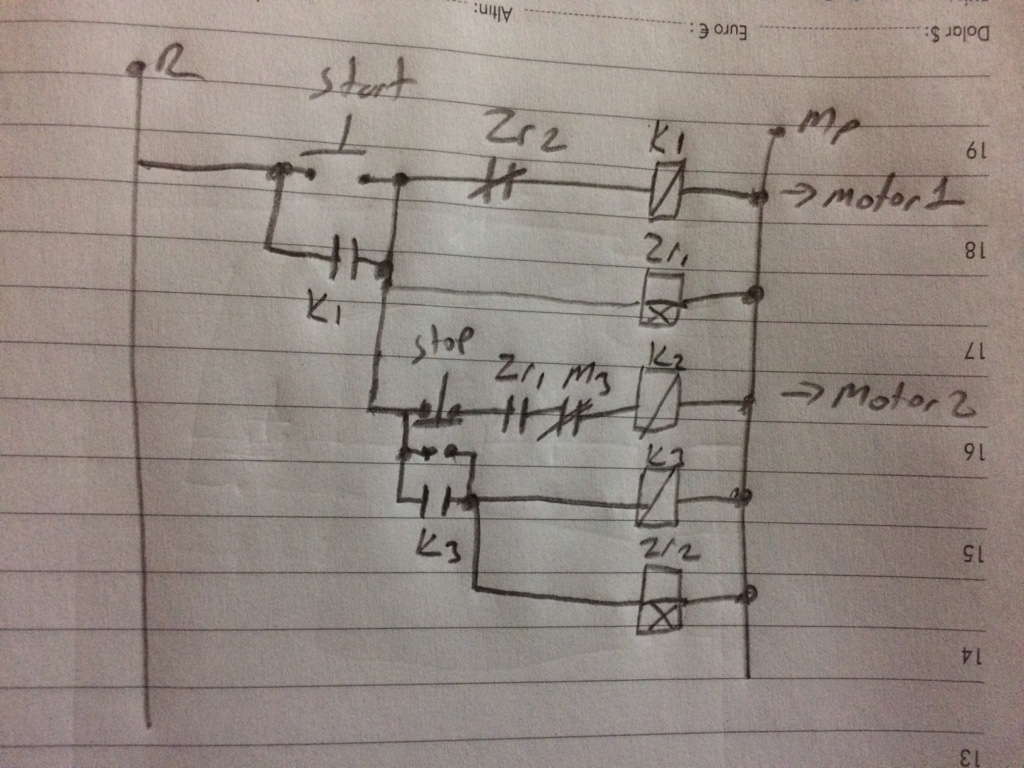 Dolar $: Euro € : Altın:
R
start
Zr2
K1
MP
19
→ motor1
K1
Zr1
18
stop
Zr1
M3
K2
17
→ Motor2
16
K3
K3
15
Zr2
14
13